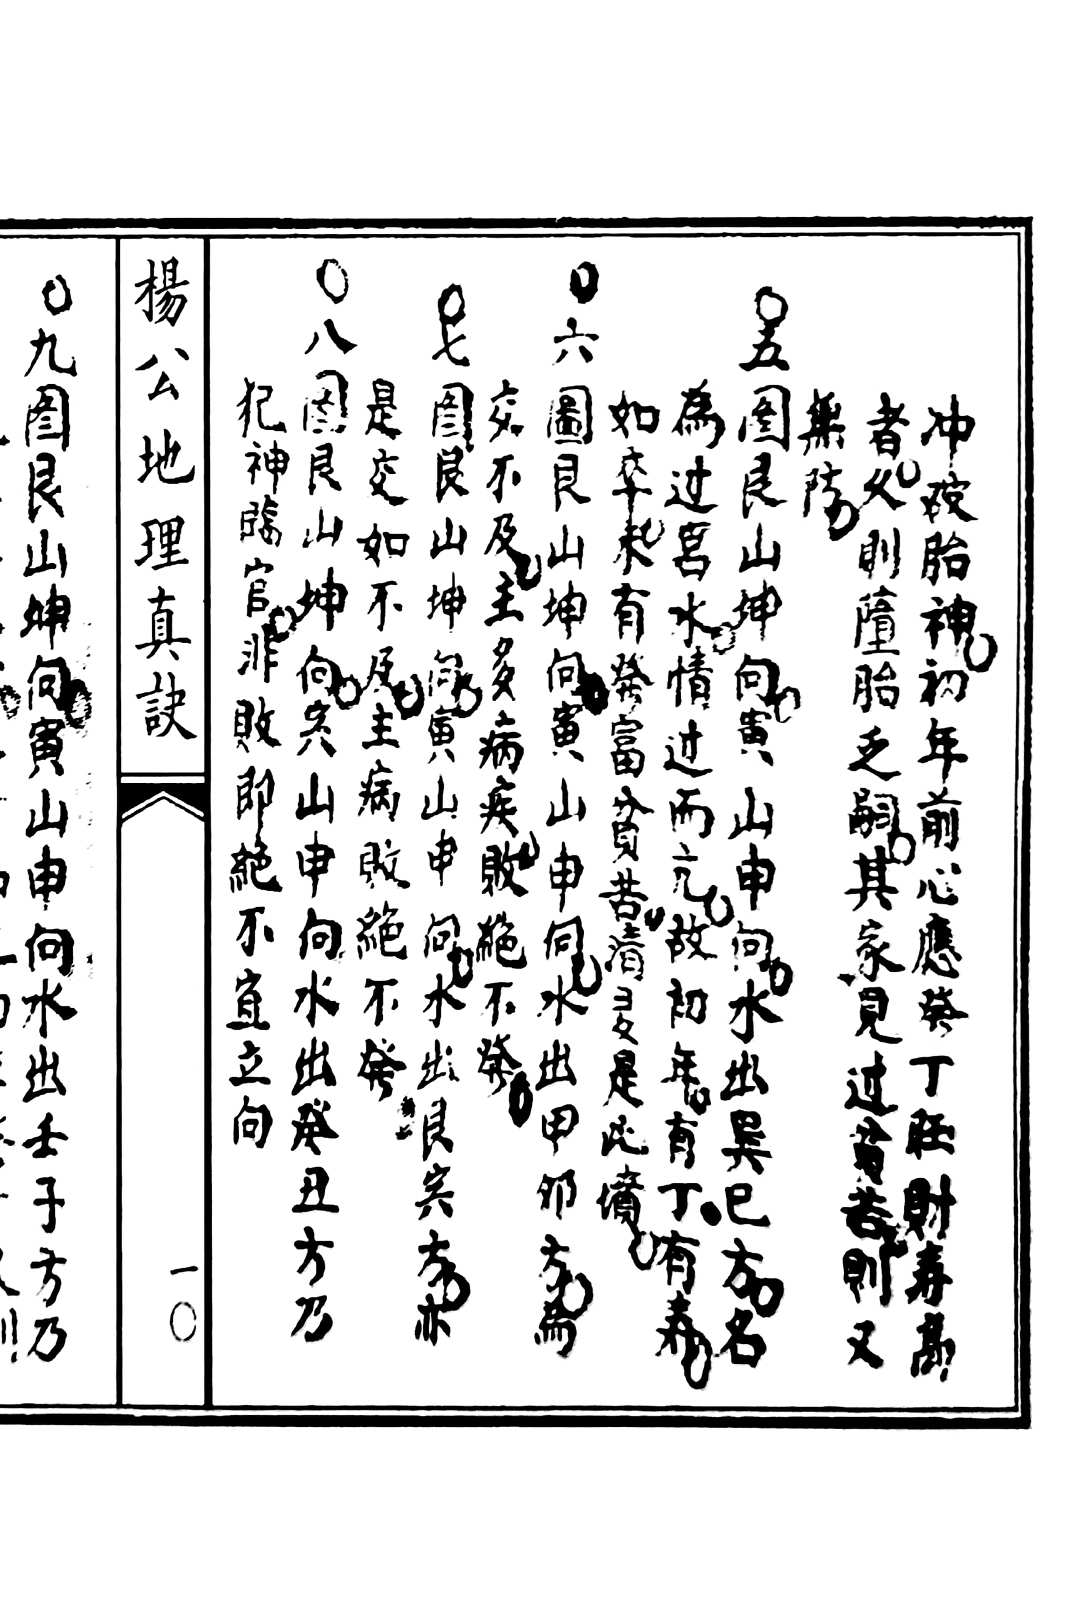 冲破胎神初年前心應癸丁旺財寿高
者久則墮胎乏嗣其家見过貧苦則又
藥防
○五图艮山坤向寅山申向水出巽巳方名
為过宮水情过而亢故初年有丁有寿
如卒未有癸富貧苦清是此墳
○六圖艮山坤向寅山申向水出甲卯方為
交不及主多病疾敗絕不發
○七图艮山坤向寅山申向水出艮寅方亦
是交如不及主病敗絕不發
○八图艮山坤向寅山申向水出癸丑方乃
犯神臨官非敗即絕不宜立向
楊公地理真訣
一○
○九图艮山坤向寅山申向水出壬子方乃